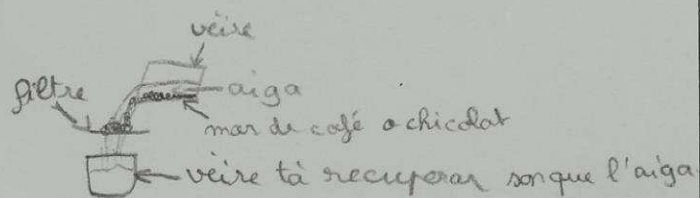 vèire
filtre
aiga
mar de cafè o chicolat
vèire tà recuperar sonque l'aiga